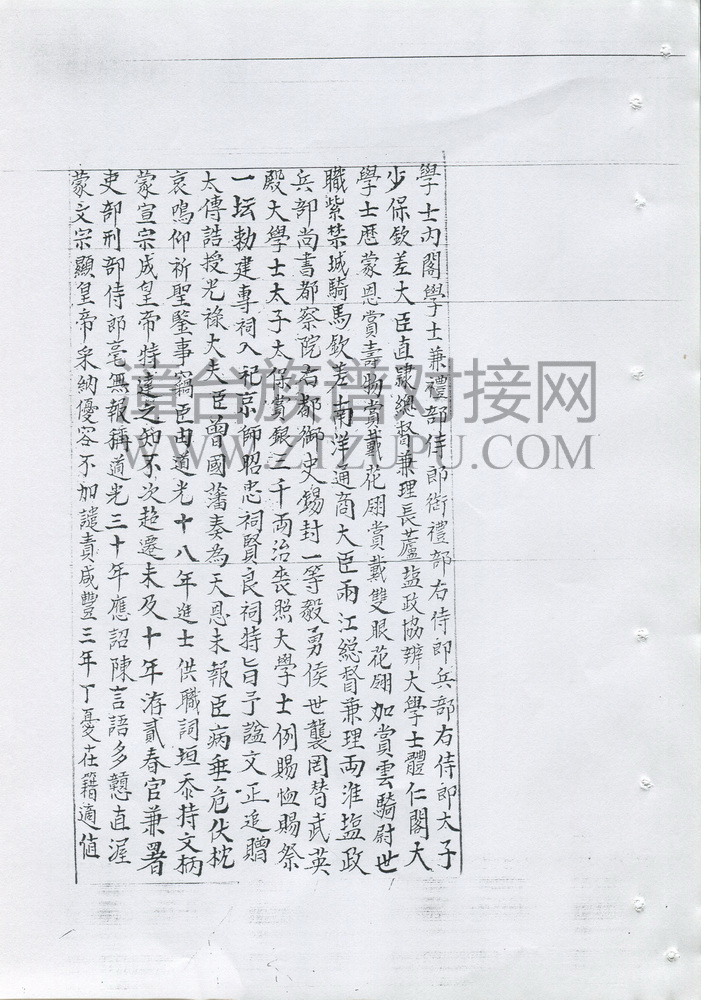 學士內閣學士兼禮部侍郎銜禮部右侍郎兵部右侍郎太子
少保欽差大臣直隸總督兼理長蘆塩政協辦大學士體仁閣大
學士歷蒙恩賞壽物賞戴花翎賞戴雙眼花翎加賞雲騎尉世
職紫禁城騎馬欽差南洋通商大臣兩江総督兼理兩淮塩政
兵部尚書都察院右都御史錫封一等毅勇侯世襲罔替武英
殿大學士太子太保賞銀三千両治喪照大學士例賜恤賜祭
一坛勅建專祠入祀京師昭忠祠賢良祠特旨予謚文正追贈
太傅誥授光祿大夫臣曾國藩奏為天恩未報臣病垂危伏枕
哀鳴仰祈聖鑒事竊臣由道光十八年進士供職詞垣忝持文柄
蒙宣宗成皇帝特達之知不次超遷未及十年洊貳春官兼署
吏部刑部侍郎毫無報稱道光三十年應詔陳言語多戇直渥
蒙文宗顯皇帝采納優容不加譴責咸豐三年丁憂在籍適值
童台族谱对接网
WWW.ZTZUPU.COM